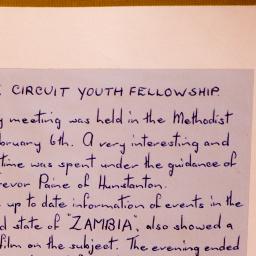 CIRCUIT YOUTH FELLOWSHIP.
meeting was held in the Methodist
bruary 6th. A very interesting and
time was spent under the guidance of
revor Paine of Hunstanton.
up to date information of events in the
d state of "ZAMBIA", also showed a
film on the subject. The evening ended